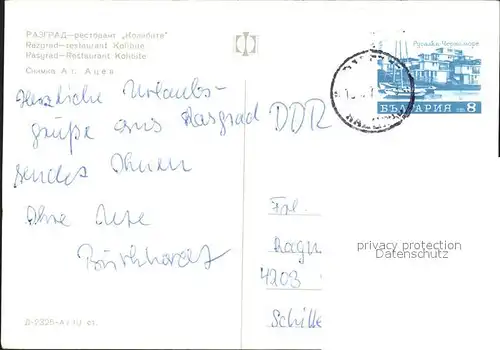 РАЗГРАД—ресторант „Колибите"
Razgrad-restaurant Kolibite
Rasgrad-Restaurant Kolibite
Снимка Ат. Ацев
Русалка-Черно море
БЪЛГАРИЯ 8
Herzliche Urlaubs-
grüße aus Rasgrad
DDR
sendet Ihnen
Ihre Ute
Burkhardt
Frl.
Dagm
4203
Schille
privacy protection
Datenschutz
Д-2325-А